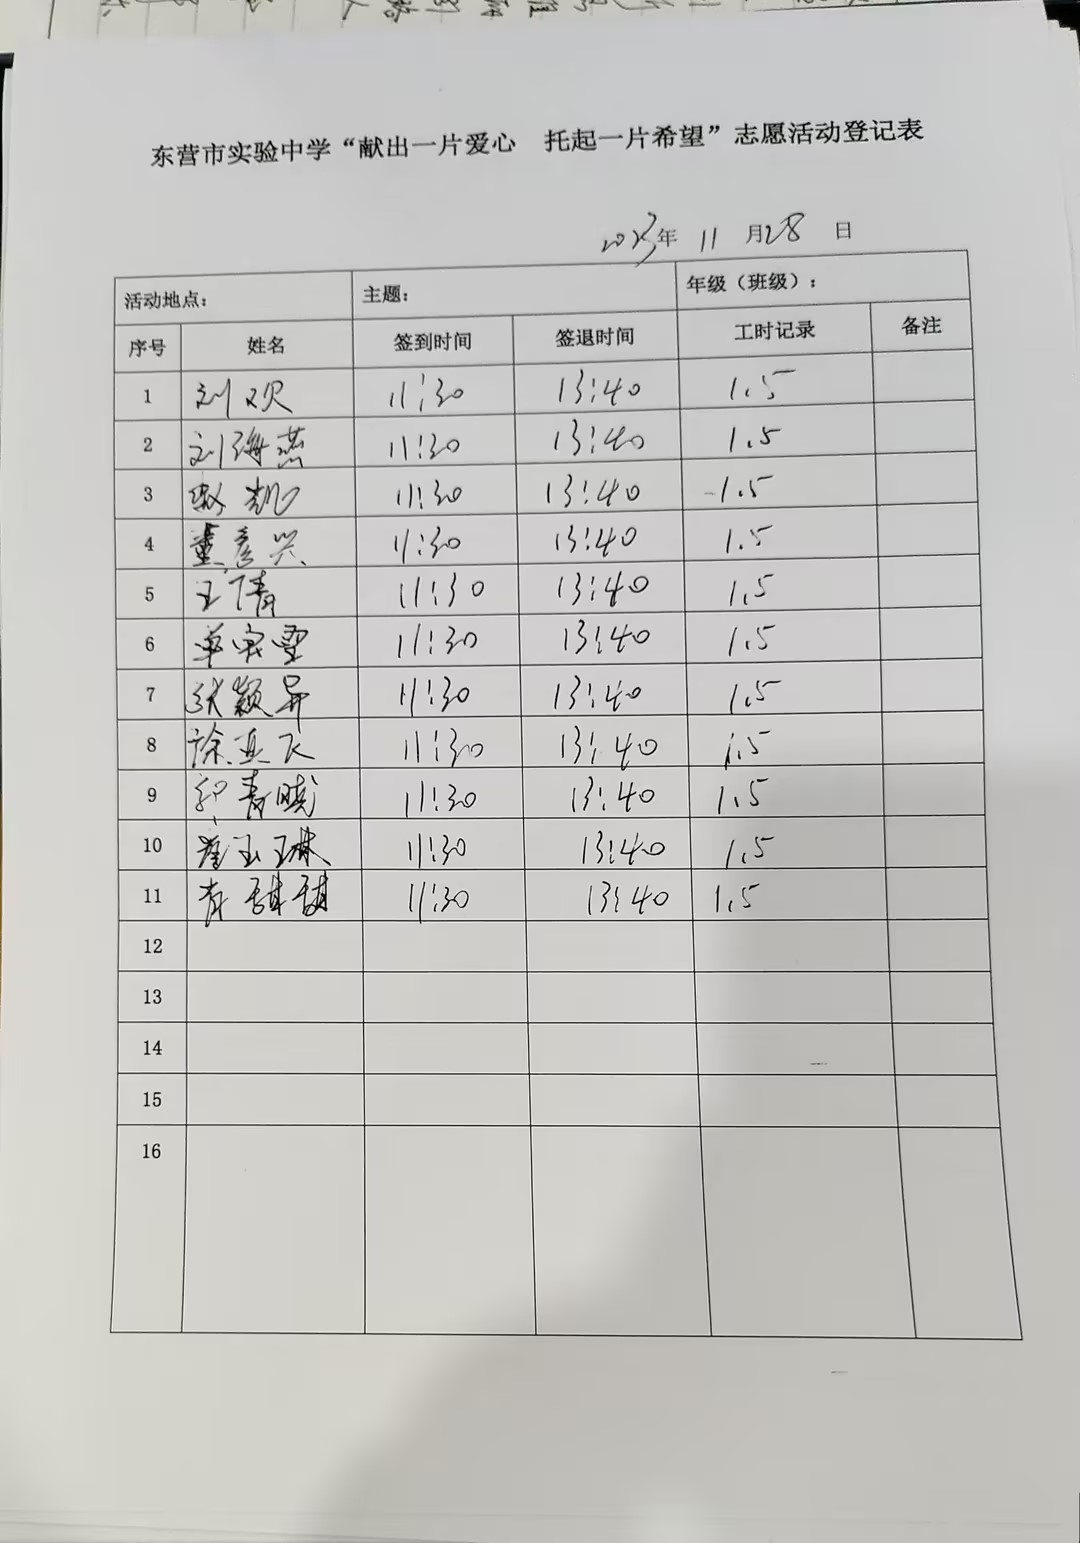 东营市实验中学“献出一片爱心 托起一片希望”志愿活动登记表
2023年 11 月28 日
活动地点: 主题: 年级（班级）:
序号 姓名 签到时间 签退时间 工时记录 备注
1 刘欢 11:30 13:40 1.5
2 刘海燕 11:30 13:40 1.5
3 11:30 13:40 1.5
4 董彦兴 11:30 13:40 1.5
5 王倩 11:30 13:40 1.5
6 11:30 13:40 1.5
7 张颖异 11:30 13:40 1.5
8 徐 11:30 13:40 1.5
9 青晓 11:30 13:40 1.5
10 玉琳 11:30 13:40 1.5
11 甜甜 11:30 13:40 1.5
12
13
14
15
16